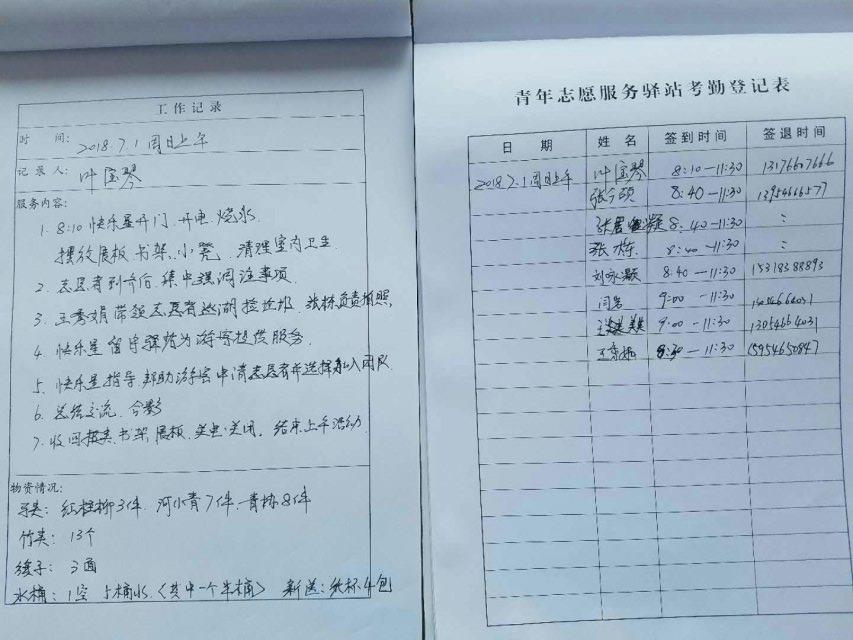 工作记录
时 间: 2018.7.1 周日上午
记录人: 叶宝琴
服务内容:
1. 8:10 快乐星开门、开电、烧水.
摆放展板、书架、小凳、清理室内卫生
2. 志愿者到齐后, 集中强调注意事项.
3. 王秀娟带领志愿者巡湖捡垃圾. 张栋负责拍照.
4. 快乐星留守驿站为游客提供服务.
5. 快乐星指导、帮助游客申请志愿者并选择加入团队
6. 总结交流、合影
7. 收回报夹、书架、展板, 关电.关闭. 结束上午活动.
物资情况:
红柽柳3件. 河小青7件. 青协8件
竹夹: 13个
3面
水桶: 1空 5桶水.(其中一个半桶) 新送:纸杯4包
青年志愿服务驿站考勤登记表
日 期 姓 名 签到时间 签退时间
2018.7.1周日上午 叶宝琴 8:10—11:30 13176607666
8:40—11:30 13954666577
8:40—11:30 :
张栋 8:40—11:30 :
刘永颖 8:40—11:30 15318388893
9:00—11:30
9:00—11:30 13054664031
8:30—11:30 15954650847